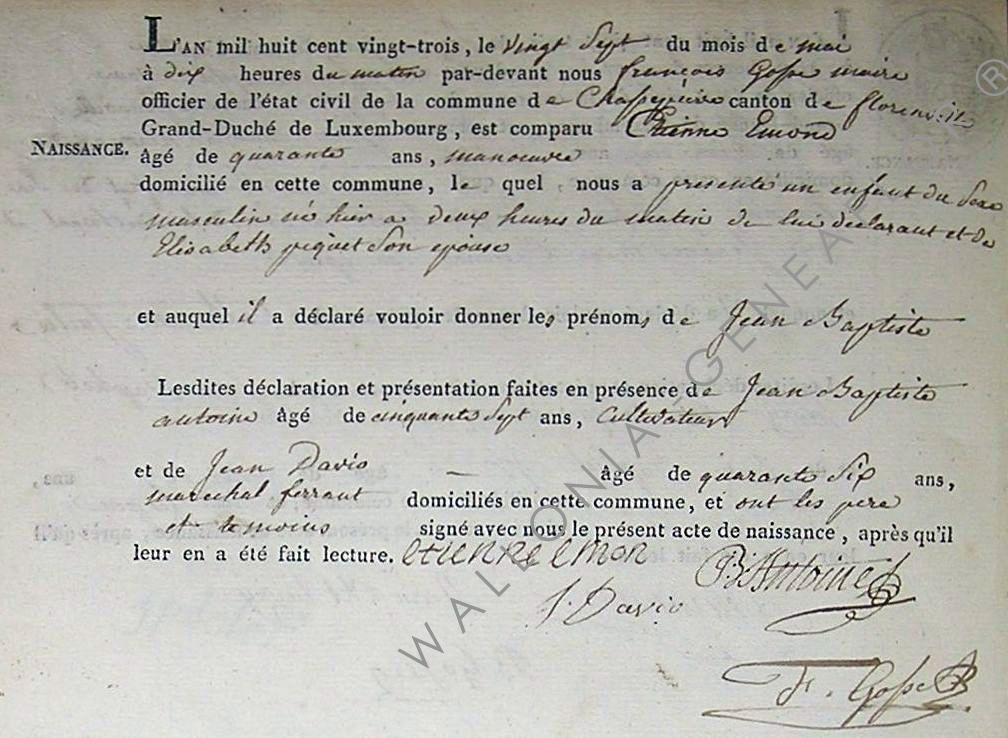 L'AN mil huit cent vingt-trois, le vingt Sept du mois de mai
à dix heures du matin par-devant nous françois Gosse maire
officier de l'état civil de la commune de Chassepierre canton de florenville
Grand-Duché de Luxembourg, est comparu Etienne Emond
NAISSANCE.
âgé de quarante ans, manoeuvre
domicilié en cette commune, le quel nous a presenté un enfant du sexe
masculin né hier a deux heures du matin de lui declarant et de
Elisabeth piquet son epouse
et auquel il a déclaré vouloir donner les prénoms de Jean Baptiste
Lesdites déclaration et présentation faites en présence de Jean Baptiste
antoine âgé de cinquante sept ans, cultivateur
et de Jean David — âgé de quarante six ans,
marechal ferrant domiciliés en cette commune, et ont les pere
et temoins signé avec nous le présent acte de naissance, après qu'il
leur en a été fait lecture. etienne emon JB Antoine
J. David
F. Gosse
WALLONIA GENEA
®